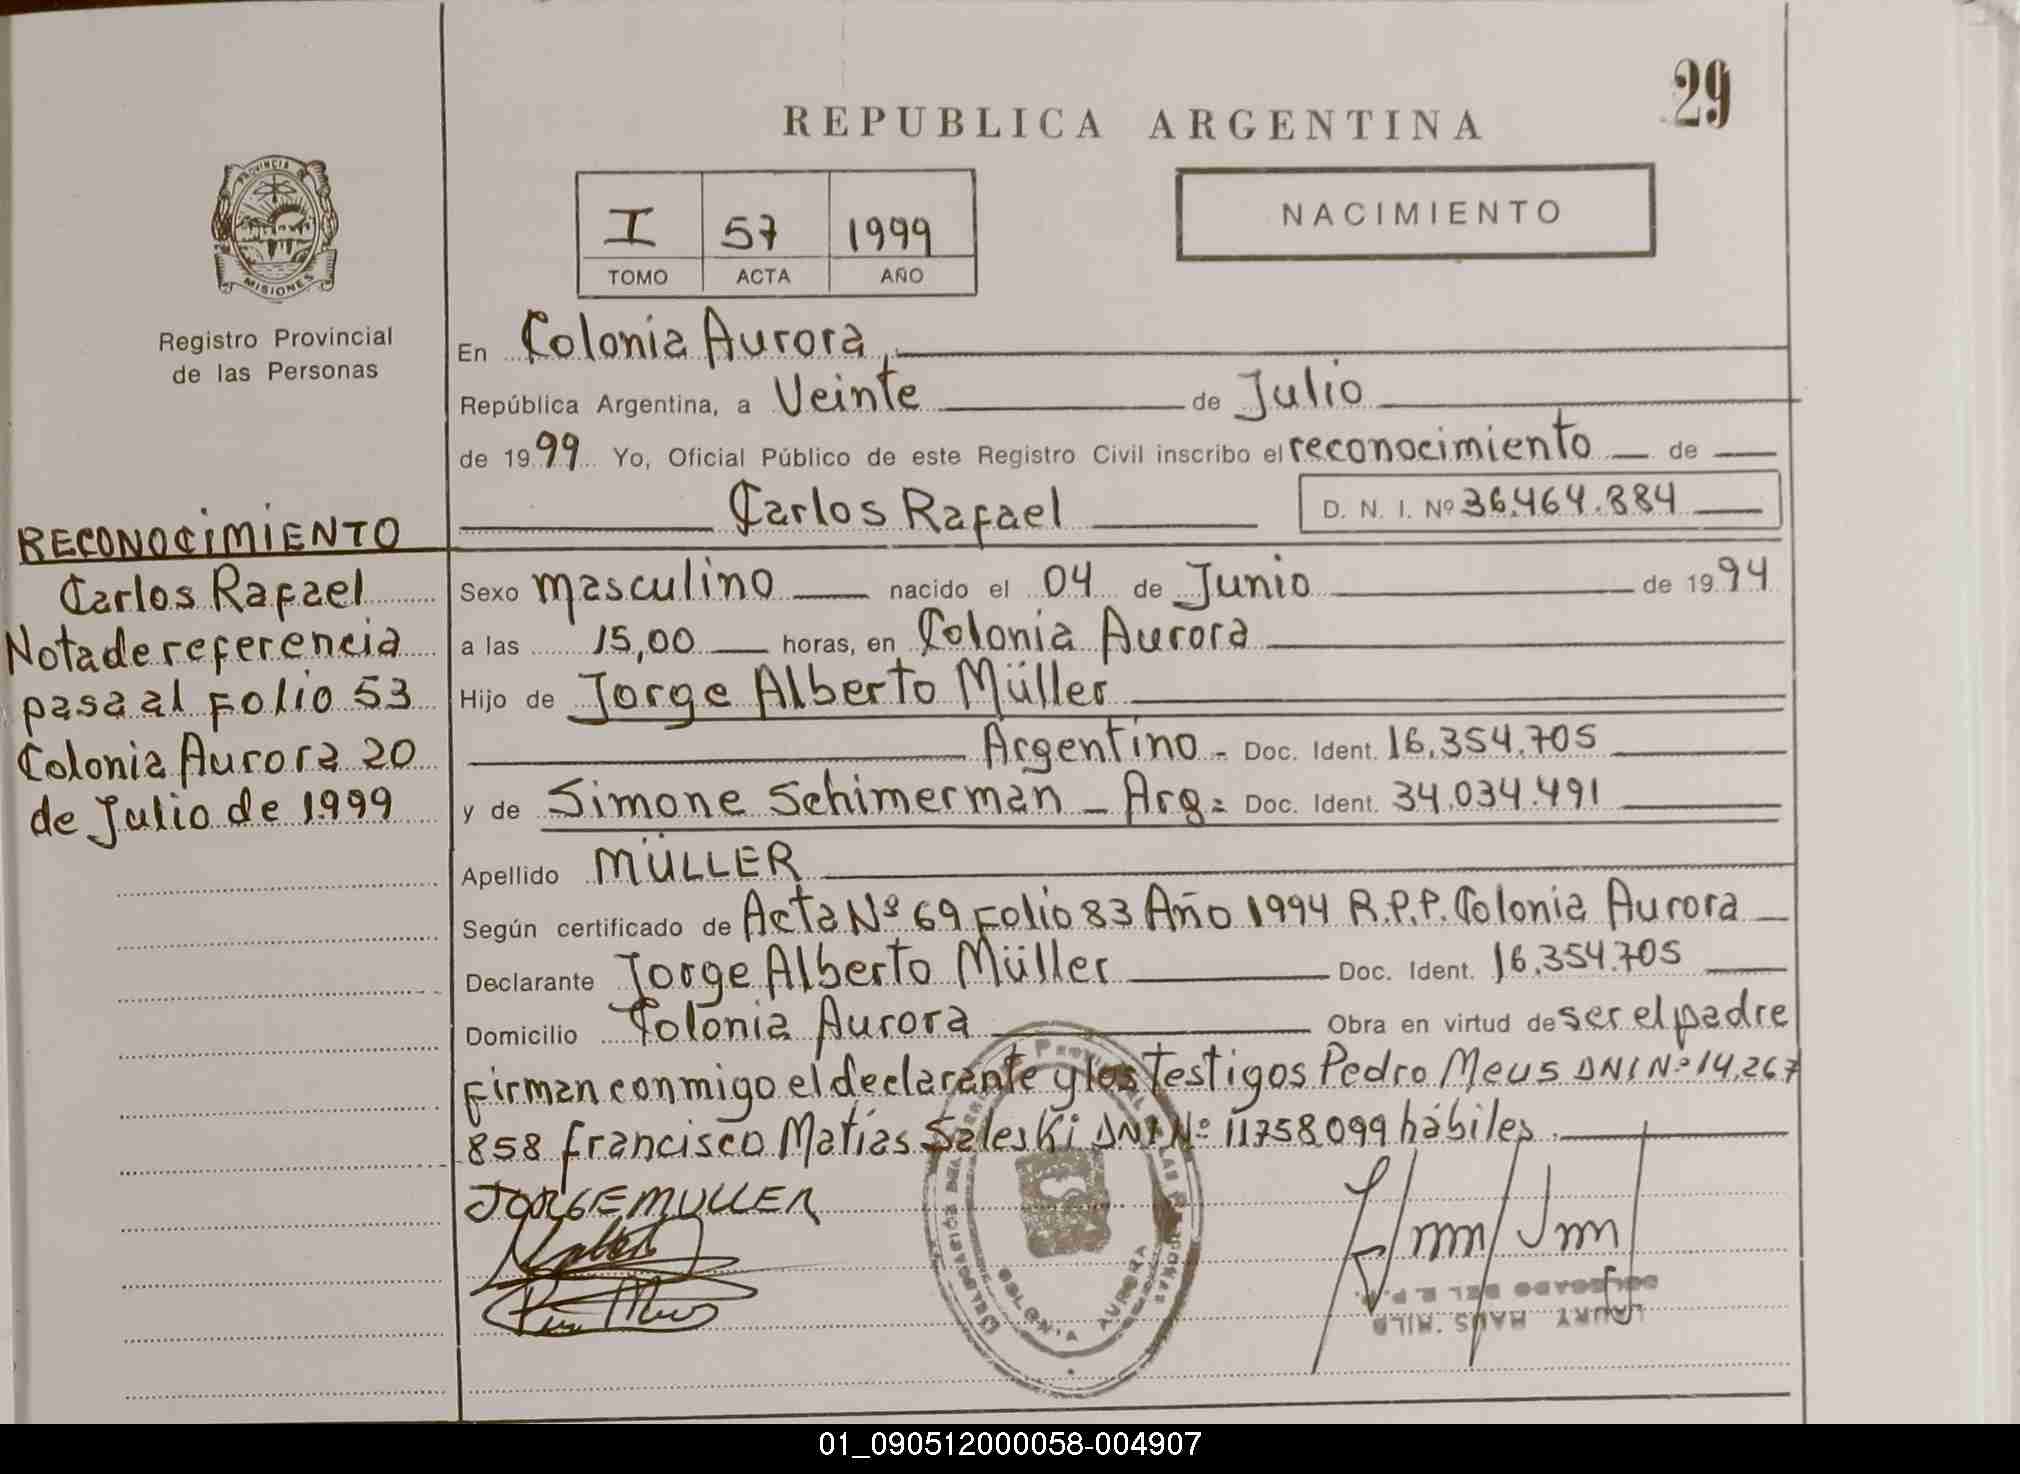 29
REPUBLICA ARGENTINA
PROVINCIA DE
MISIONES
Registro Provincial
de las Personas
I 57 1999
TOMO ACTA AÑO
NACIMIENTO
RECONOCIMIENTO
Carlos Rafael
Nota de referencia
pasa al Folio 53
Colonia Aurora 20
de Julio de 1999
En Colonia Aurora,
República Argentina, a Veinte de Julio
de 1999 Yo, Oficial Público de este Registro Civil inscribo el reconocimiento de
Carlos Rafael D. N. I. Nº 36.464.884
Sexo Masculino nacido el 04 de Junio de 1994
a las 15,00 horas, en Colonia Aurora
Hijo de Jorge Alberto Müller
Argentino - Doc. Ident. 16.354.705
y de Simone Schimerman - Arg = Doc. Ident. 34.034.491
Apellido MÜLLER
Según certificado de Acta Nº 69 Folio 83 Año 1994 R.P.P. Colonia Aurora
Declarante Jorge Alberto Müller Doc. Ident. 16.354.705
Domicilio Colonia Aurora Obra en virtud de ser el padre
Firman conmigo el declarante y los Testigos Pedro Meus DNI Nº 14.267
858 Francisco Matías Saleski DNI Nº 11758099 hábiles.
JORGE MULLER
COLONIA AURORA
DELEGADO DEL R.P.P.
LAURY HANS HILD
01_090512000058-004907